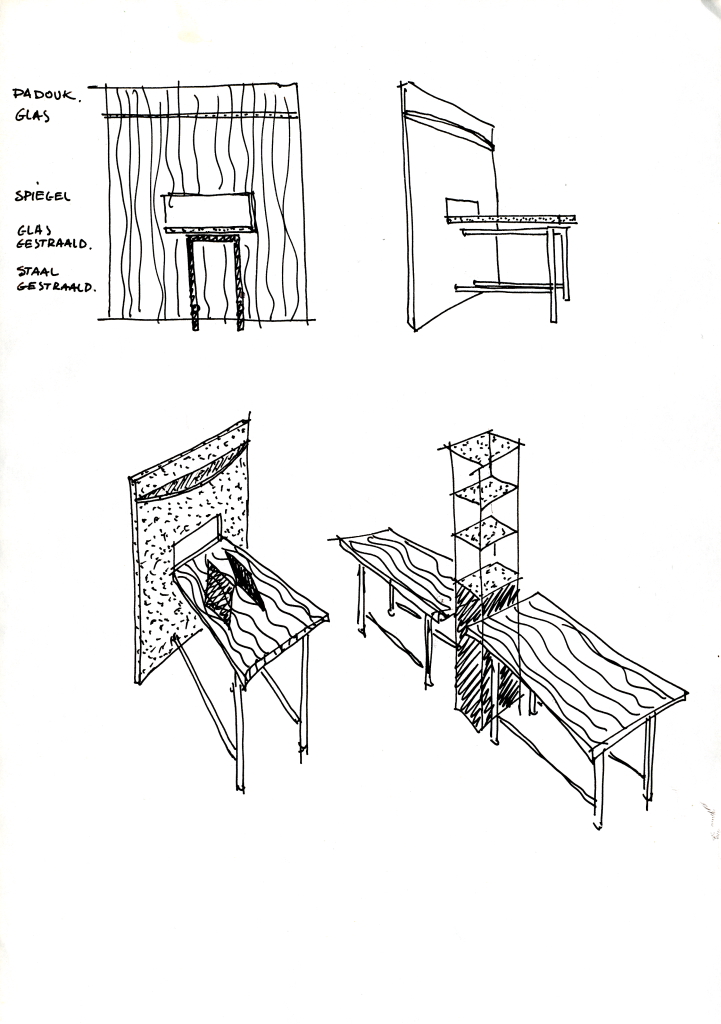 PADOUK.
GLAS
SPIEGEL
GLAS
GESTRAALD.
STAAL
GESTRAALD.